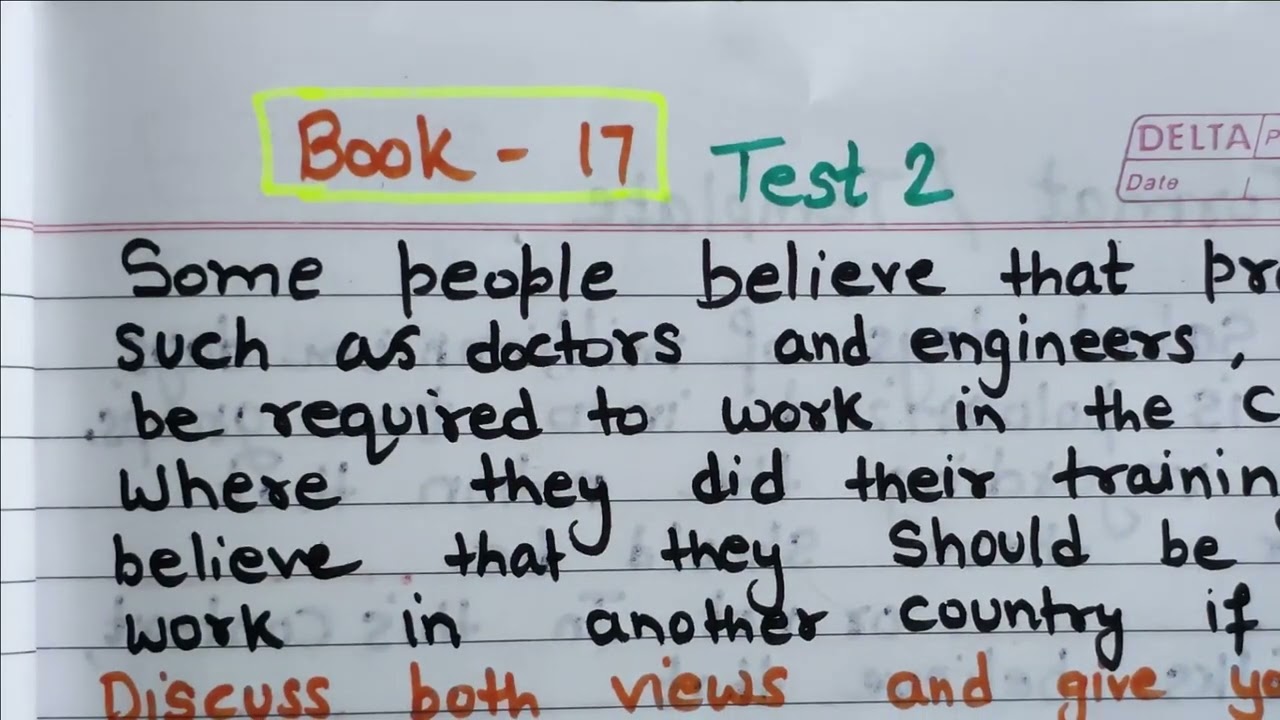 Book - 17 Test 2
DELTA
Date
Some people believe that pr
such as doctors and engineers,
be required to work in the c
Where they did their trainin
believe that they should be
work in another country if
Discuss both views and give yo